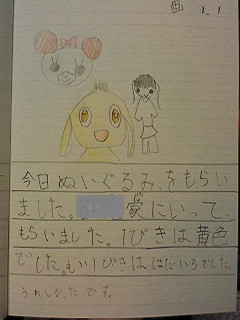 今日ぬいぐるみをもらい
ました。 家にいって、
もらいました。1ぴきは黄色
でした。もい1ぴきははだいろでした。
うれしかったです。